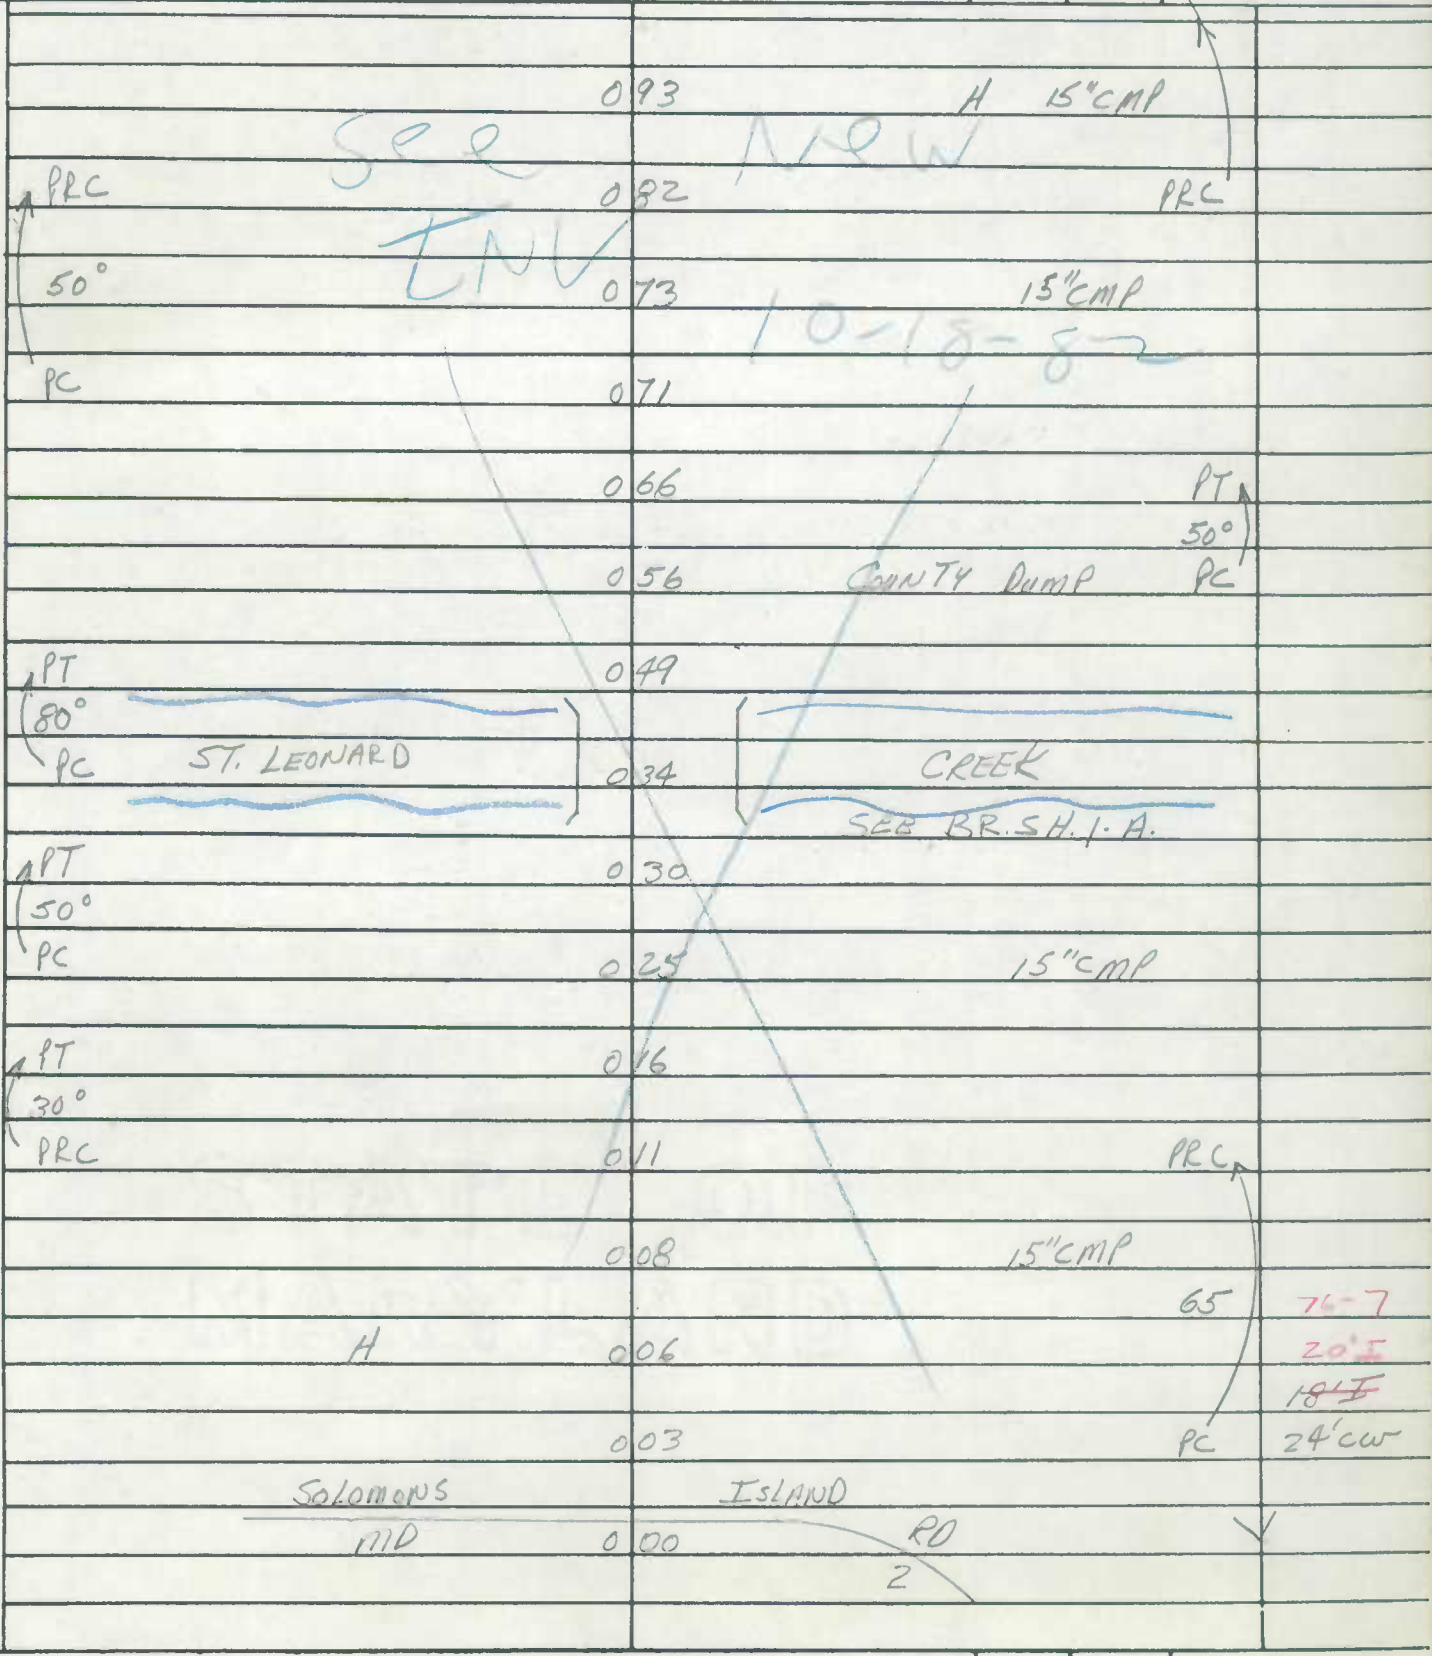 0 93 H 15"CMP
See New
PRC 0 82 PRC
INV
50° 0 73 15"CMP
10-18-82
PC 0 71
0 66 PT
50°
0 56 COUNTY DUMP PC
PT 0 49
80°
PC ST. LEONARD 0 34 CREEK
SEE BR.SH.1.A.
PT 0 30
50°
PC 0 25 15"CMP
PT 0 16
30°
PRC 0 11 PRC
0 08 15"CMP
65 76-7
H 0 06 20'I
18'I
0 03 PC 24'CW
SOLOMONS ISLAND
MD 0 00 RD
2